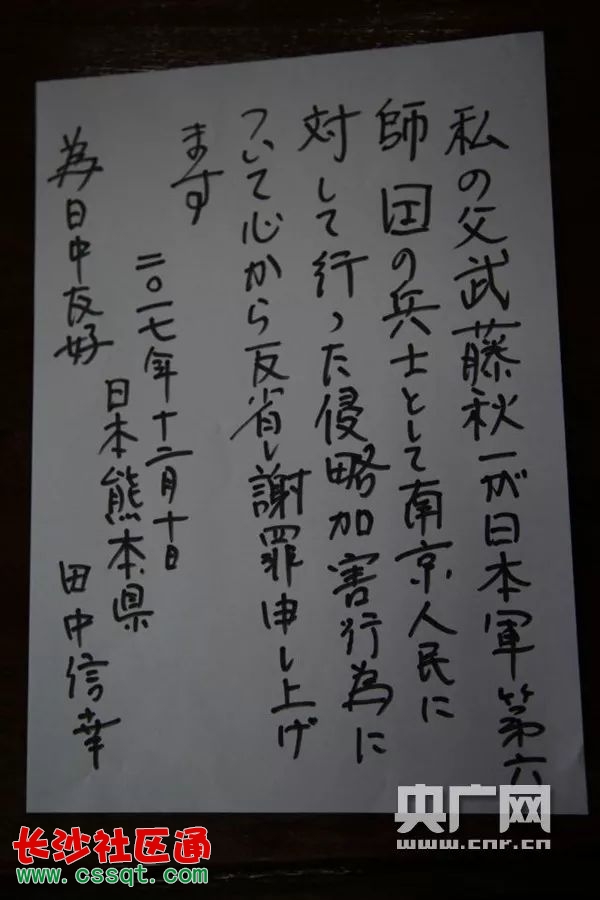 私の父武藤秋一が日本軍第六
師団の兵士として南京人民に
対して行った侵略加害行為に
ついて心から反省し謝罪申し上げ
ます
二〇一七年十二月十日
日本熊本県
田中信幸
為日中友好
央广网
www.cnr.cn
长沙社区通
www.cssqt.com